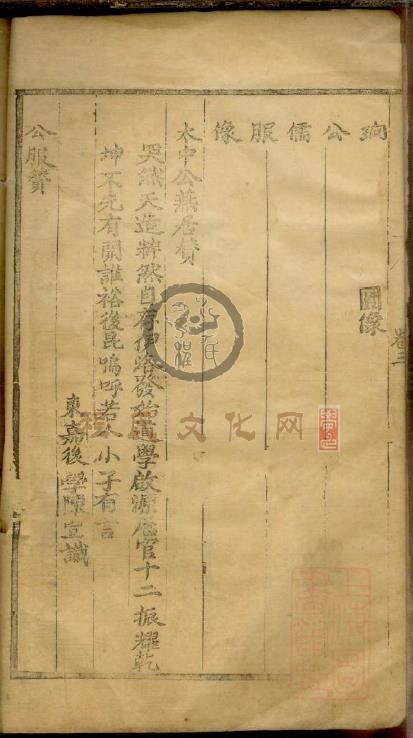 珦公儒服像
圖像
卷三
太中公燕居贊
奐然天造粹然自存伊洛發始道學啟源歷官十二振耀乾
坤不先有開誰裕後昆嗚呼若人小子有言
東嘉後學陳宣識
公服贊
文化网